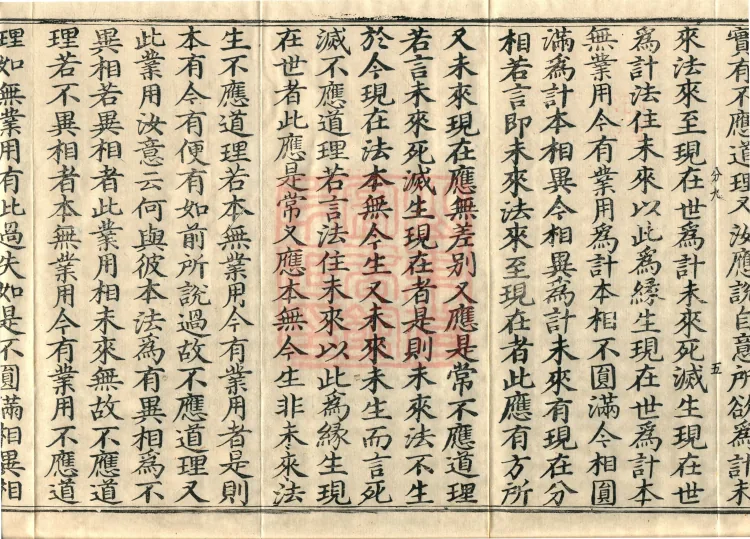 實有不應道理又汝應說自意所欲爲計未
分九 五
來法來至現在世爲計未來死滅生現在世
爲計法住未來以此爲緣生現在世爲計本
無業用今有業用爲計本相不圓滿今相圓
滿爲計本相異今相異爲計未來有現在分
相若言即未來法來至現在者此應有方所
又未來現在應無差別又應是常不應道理
若言未來死滅生現在者是則未來法不生
於今現在法本無今生又未來未生而言死
滅不應道理若言法住未來以此爲緣生現
在世者此應是常又應本無今生非未來法
生不應道理若本無業用今有業用者是則
本有今有便有如前所說過故不應道理又
此業用汝意云何與彼本法爲有異相爲不
異相若異相者此業用相未來無故不應道
理若不異相者本無業用今有業用不應道
理如無業用有此過失如是不圓滿相異相